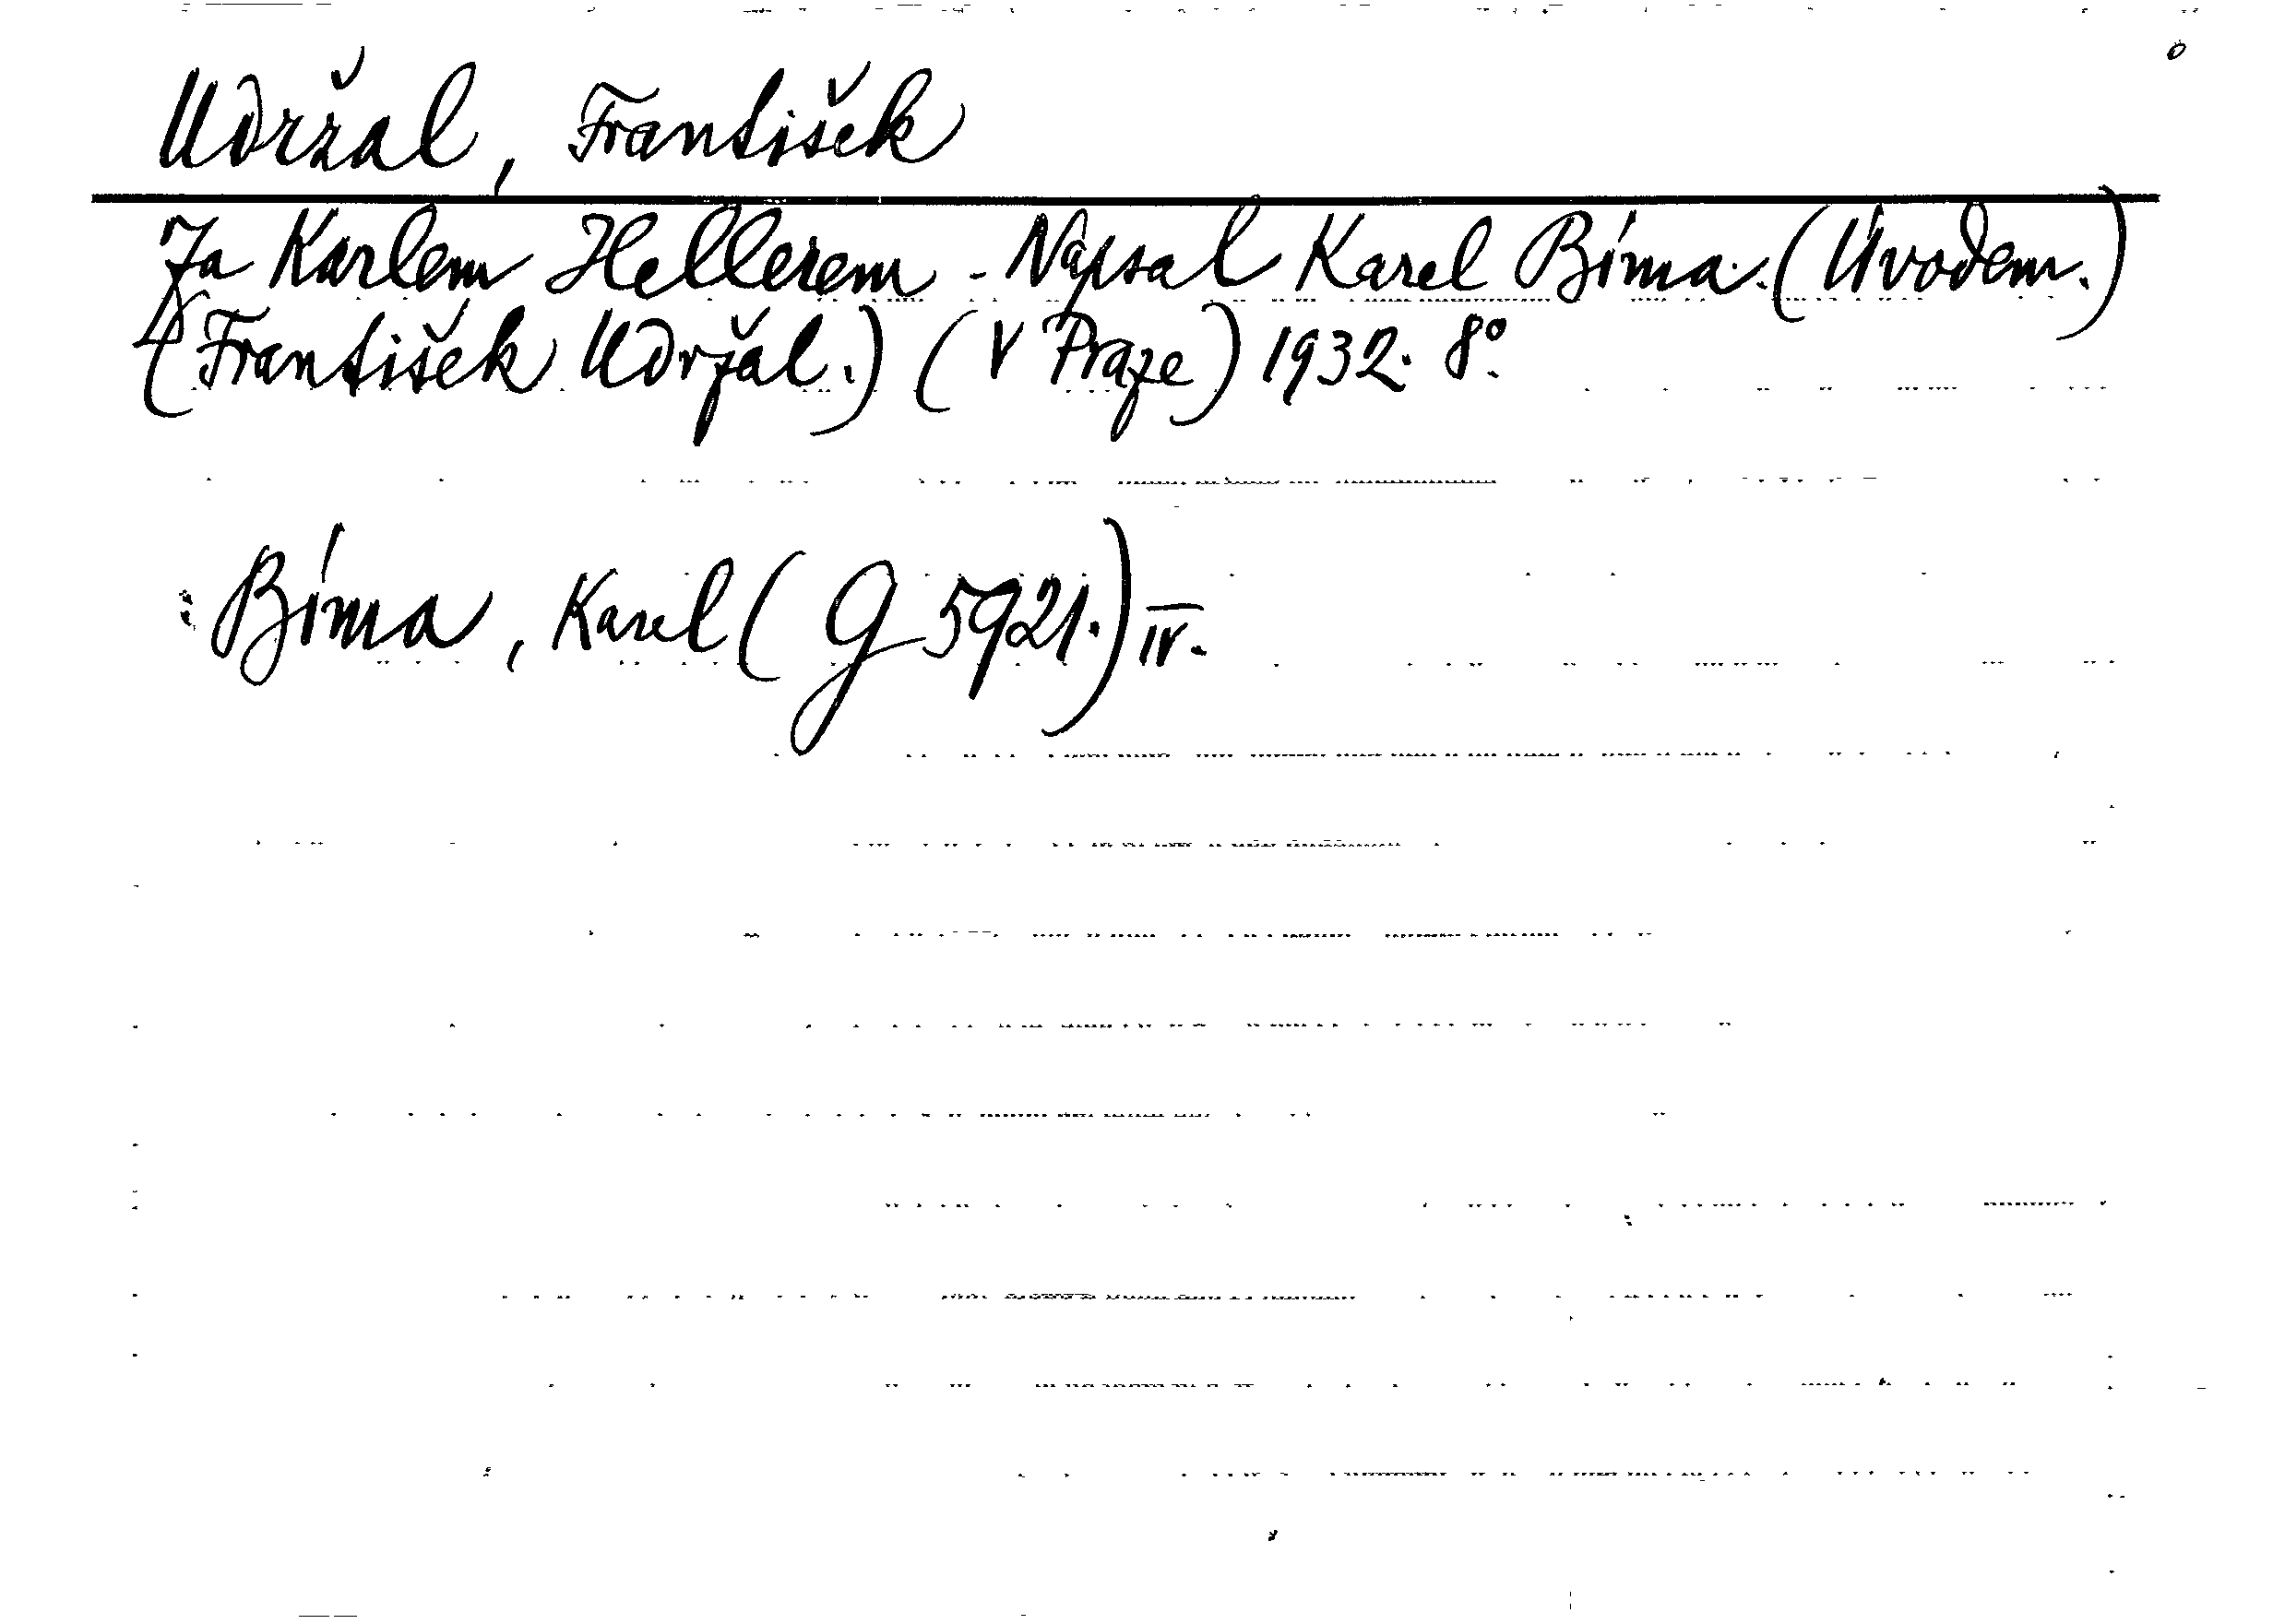 Udržal, František
Za Karlem Hellerem - Napsal Karel Bíma. (Úvodem.)
(František Udržal.) (V Praze) 1932. 8°.
Bíma, Karel (G 5921.) IV.